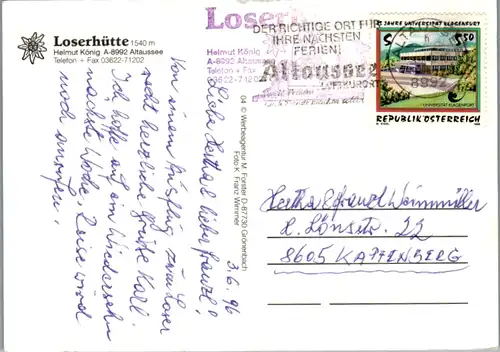 Loserhütte 1540 m
Helmut König A-8992 Altaussee
Telefon + Fax 03622-71202
Loserhütte
Helmut König
A-8992 Altaussee
Telefon + Fax
03622-71202
DER RICHTIGE ORT FÜR
IHRE NÄCHSTEN
FERIEN!
Altaussee
LUFTKURORT
8992
25 JAHRE UNIVERSITÄT KLAGENFURT
S 5.50
UNIVERSITÄT KLAGENFURT
REPUBLIK ÖSTERREICH
04 © Werbeagentur M. Forster D-87730 Grönenbach
Foto K. Franz Wimmer
3.6.96
Liebe Hertha, lieber Franzl!
Von einem Ausflug zum Loser
recht herzliche Grüße Karl.
Ich hoffe auf ein Wiedersehn
nächste Woche, Luise wird
noch anrufen.
Hertha & Franzl Weinmüller
H. Lönsstr. 22
8605 KAPFENBERG